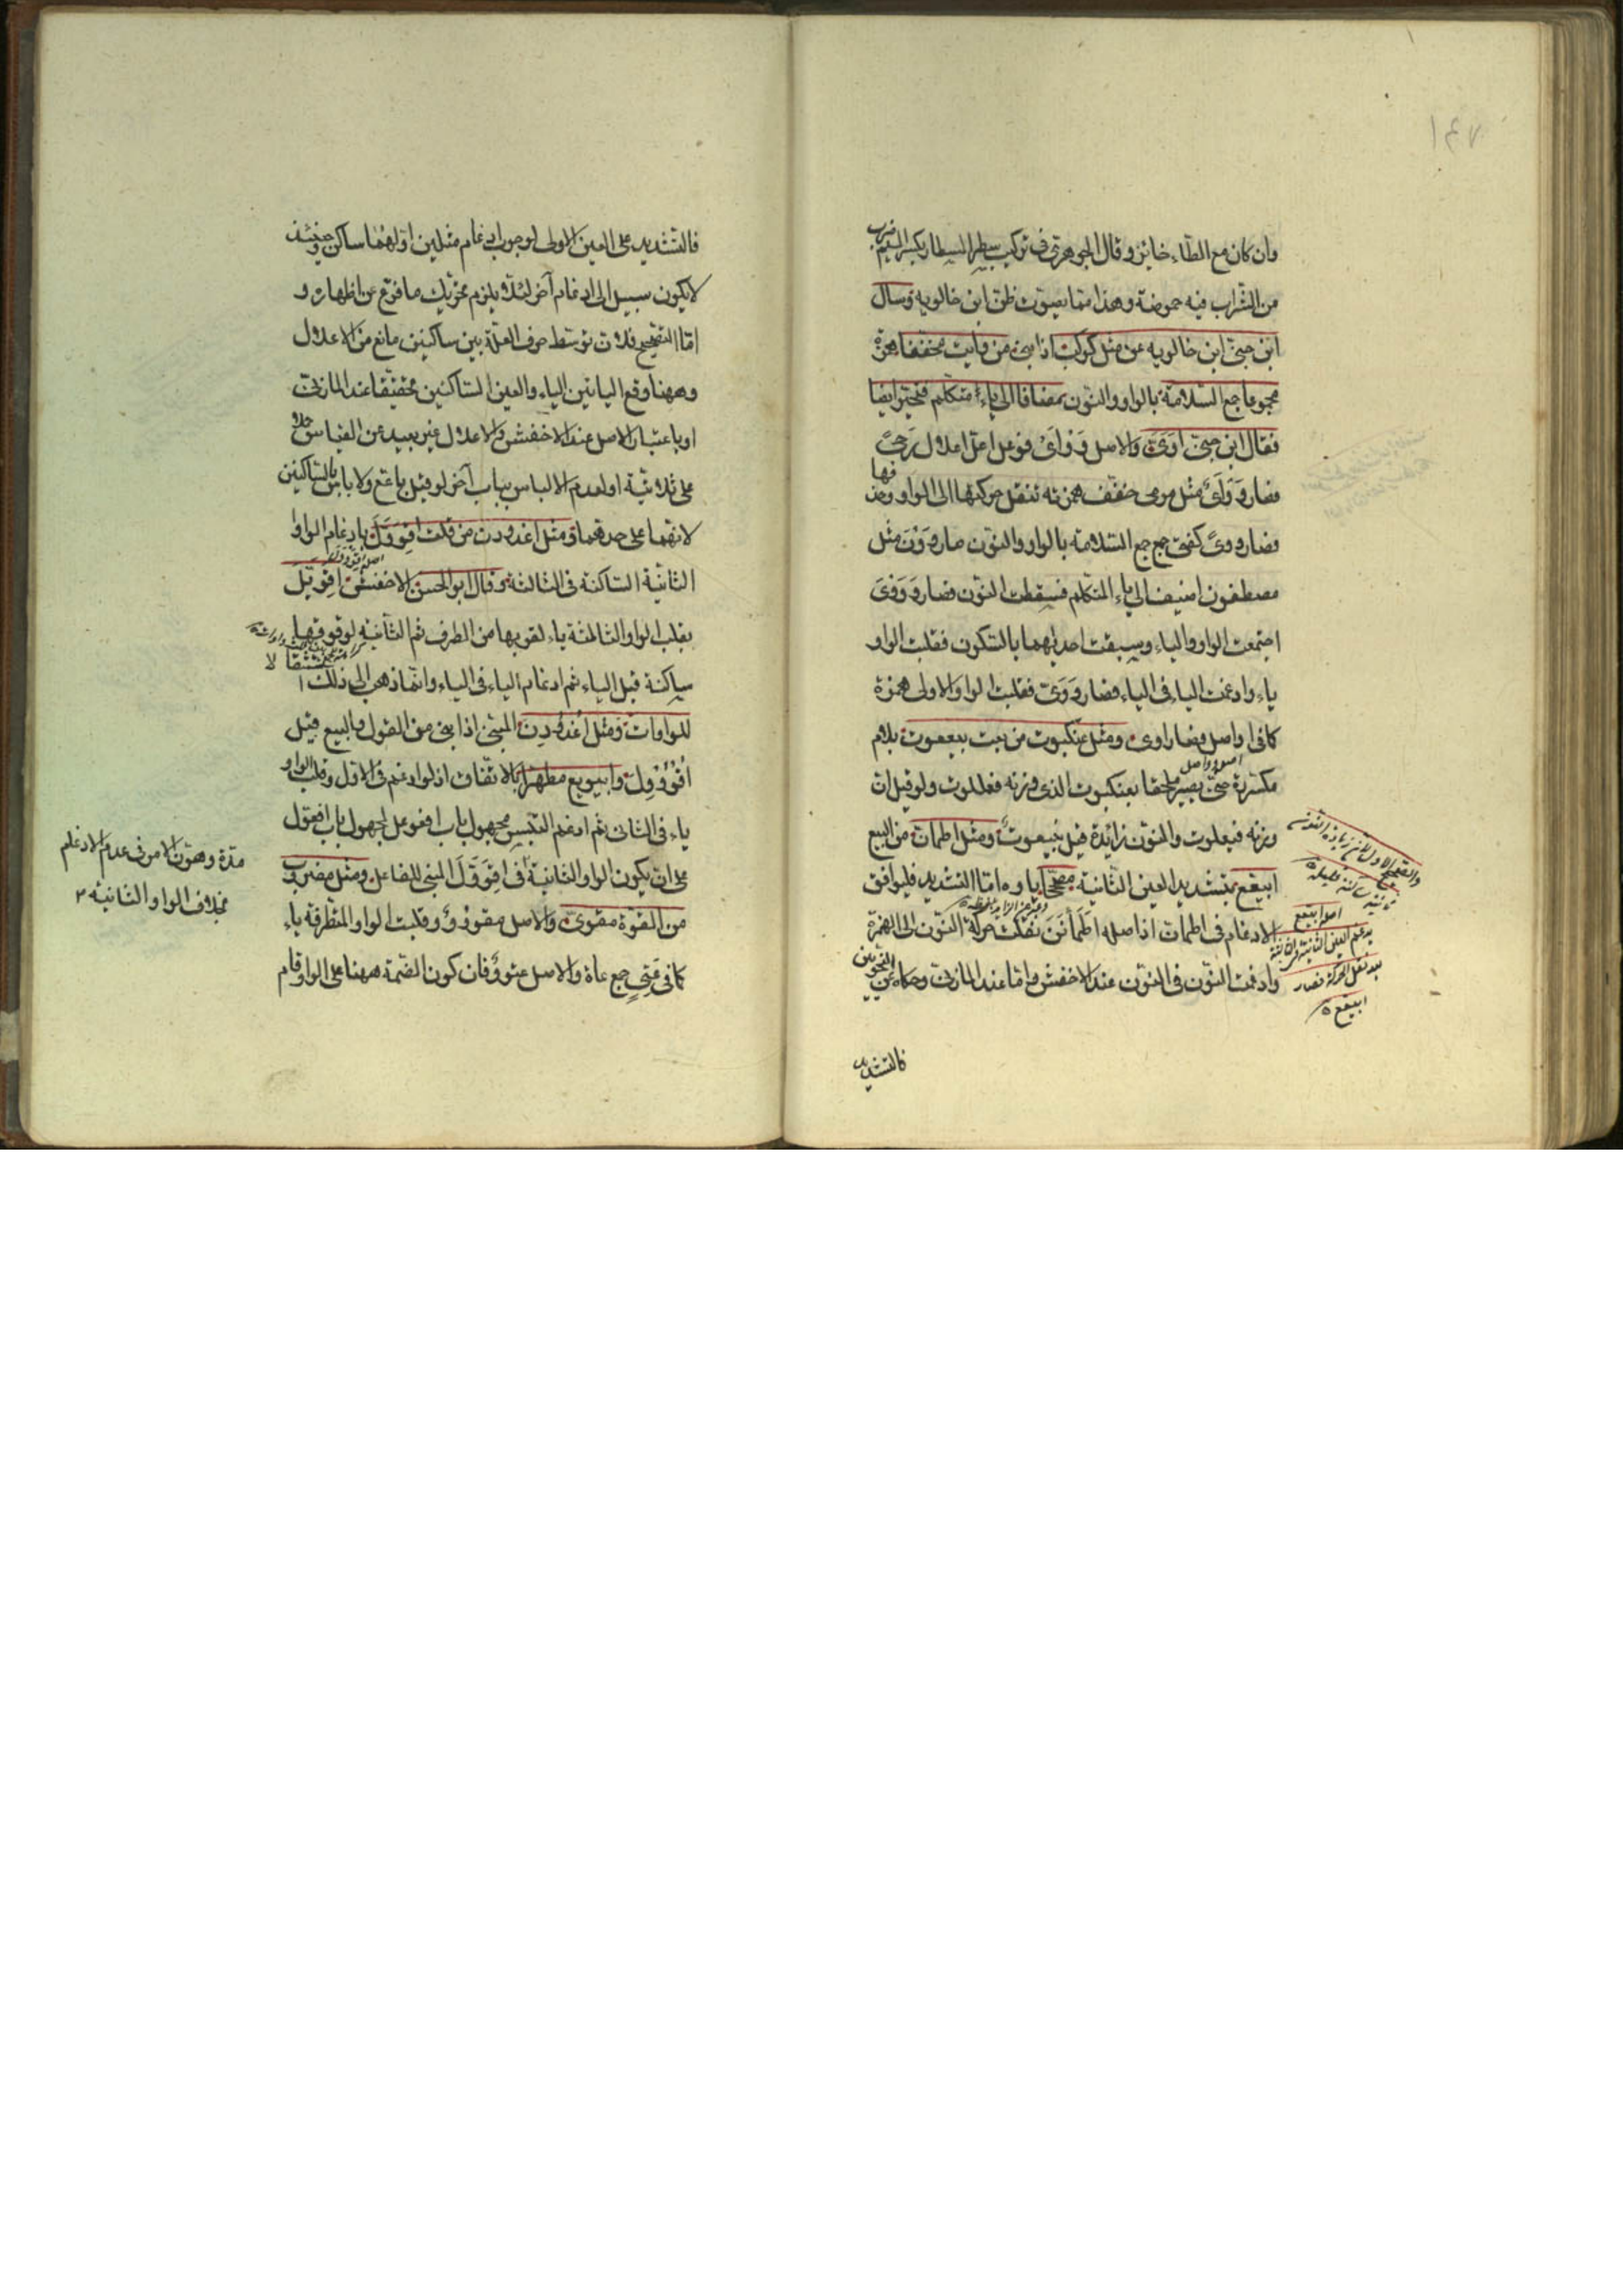 ١٤٧
وان كان مع الطاء جائز وقال الجوهري في تركيب سطر المسطار بكسر الميم ضرب
من الشراب فيه حموضة وهذا مما يصوّب ظنّ ابن خالويه وسال
ابن جنّي ابن خالويه عن مثل كوكب اذا بني من وأيت مخففا همزة
مجموعا جمع السّلامة بالواو والنون مضافا الى ياء متكلم فتحيّر ايضا
فقال ابن جنّي اوَيَّ والاصل وَوْأَيٌ فوعل اعلّ اعلال رحىً
فصار وَوْأىً مثل مولى خفّف همزته بنقل حركتها الى الواو وحذفها
فصار ووىً كفتى جمع جمع السّلامة بالواو والنون صار ووَوْنَ مثل
مصطفون اضيف الى ياء المتكلم فسقطت النون فصار وَوَوْيَ
اجتمعت الواو والياء وسبقت احديهما بالسّكون فقلبت الواو
ياء وادغمت الياء في الياء فصار وَوَيَّ فقلبت الواو الاولى همزة
كما في اواصل فصار اوي ومثل عنكبوت من بعت بيععوت بلام
اصله وواصل
مكررة حتى يصير ملحقا بعنكبوت الذي وزنه فعللوت ولو قيل ان
وزنه فنعلوت والنون زائدة قيل بنيعوت ومثل اطمأنّ من البيع
ابيعّع بتشديد العين الثانية مصححا ياؤه امّا التشديد فليوافق
الادغام في اطمأنّ اذ اصله اطْمَأْنَنَ نقلت حركة النون الى الهمزة
وادغمت النون في النون عند الاخفش وامّا عند المازني وحكاه عن النحويين
اصله ابيععع
يدغم العين الثانية في الثالثة
بعد نقل الحركة فصار
ابيعّع
فالتشديد
فالتّشديد على العين الاولى لوجوب ادغام مثلين اوّلهما ساكن وحينئذ
لا يكون سبيل الى ادغام آخر لئلا يلزم تحريك ما فرغ عن اظهاره و
امّا التصحيح فلان توسّط حرف العلّة بين ساكنين مانع من الاعلال
وههنا وقع الياء بين الباء والعين الساكنين تحقيقا عند المازني
او باعتبار الاصل عند الاخفش والاعلال غير بعيد عن القياس حملا
على ثلاثية او لعدم الالباس بباب آخر لو قيل باعّع ولا باس بالساكنين
لانهما على حدهما ومثل اغدودن من قلت اقوَوَّل بادغام الواو
اصله اقووول
الثانية السّاكنة في الثالثة وقال ابو الحسن الاخفش اقويّل
بقلب الواو الثالثة ياء لقربها من الطرف ثم الثانية لوقوعها
ساكنة قبل الياء ثم ادغام الياء في الياء وانما ذهب الى ذلك استثقالا
للواوات ومثل اغدودن المبني اذا بني من القول والبيع قيل
اقووول وابيويع مظهرا بالاتفاق اذ لو ادغم في الاول وقلب الواو
ياء في الثاني ثم ادغم التبس مجهول باب افعوعل بمجهول باب افعوّل
على ان يكون الواو الثانية في اقووّل المبني للفاعل ومثل مضروب
من القوّة مقويّ والاصل مقوووٌ وقلبت الواو المتطرفة ياء
كما في عتيّ جمع عات والاصل عتووٌ فان كون الضّمة ههنا على الواو قام
مدّة وهون الامر في عدم الادغام
بخلاف الواو الثانية